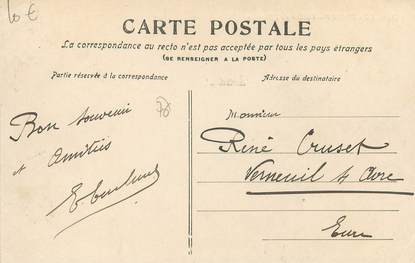 10 €
CARTE POSTALE
La correspondance au recto n'est pas acceptée par tous les pays étrangers
(SE RENSEIGNER A LA POSTE)
Partie réservée à la correspondance
Adresse du destinataire
Bon souvenir
et Amitiés
Monsieur
René Cruset
Verneuil s/ Avre
Eure